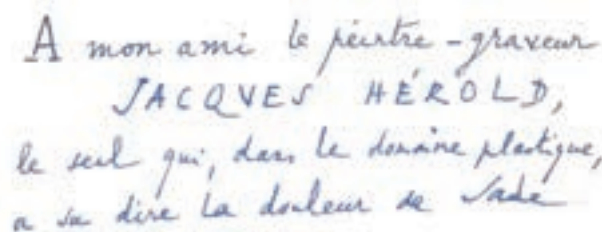 A mon ami le peintre-graveur
JACQUES HÉROLD,
le seul qui, dans le domaine plastique,
a su dire la douleur de Sade